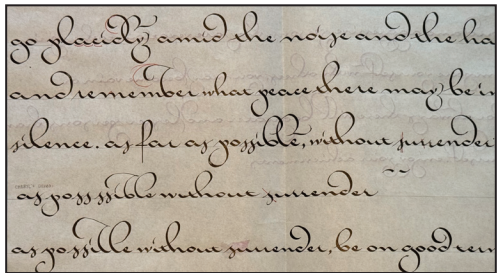 go placidly amid the noise and the ha
and remember what peace there may be in
silence. as far as possible, without surrender
as posssible without surrender
as possible without surrender, be on good ter